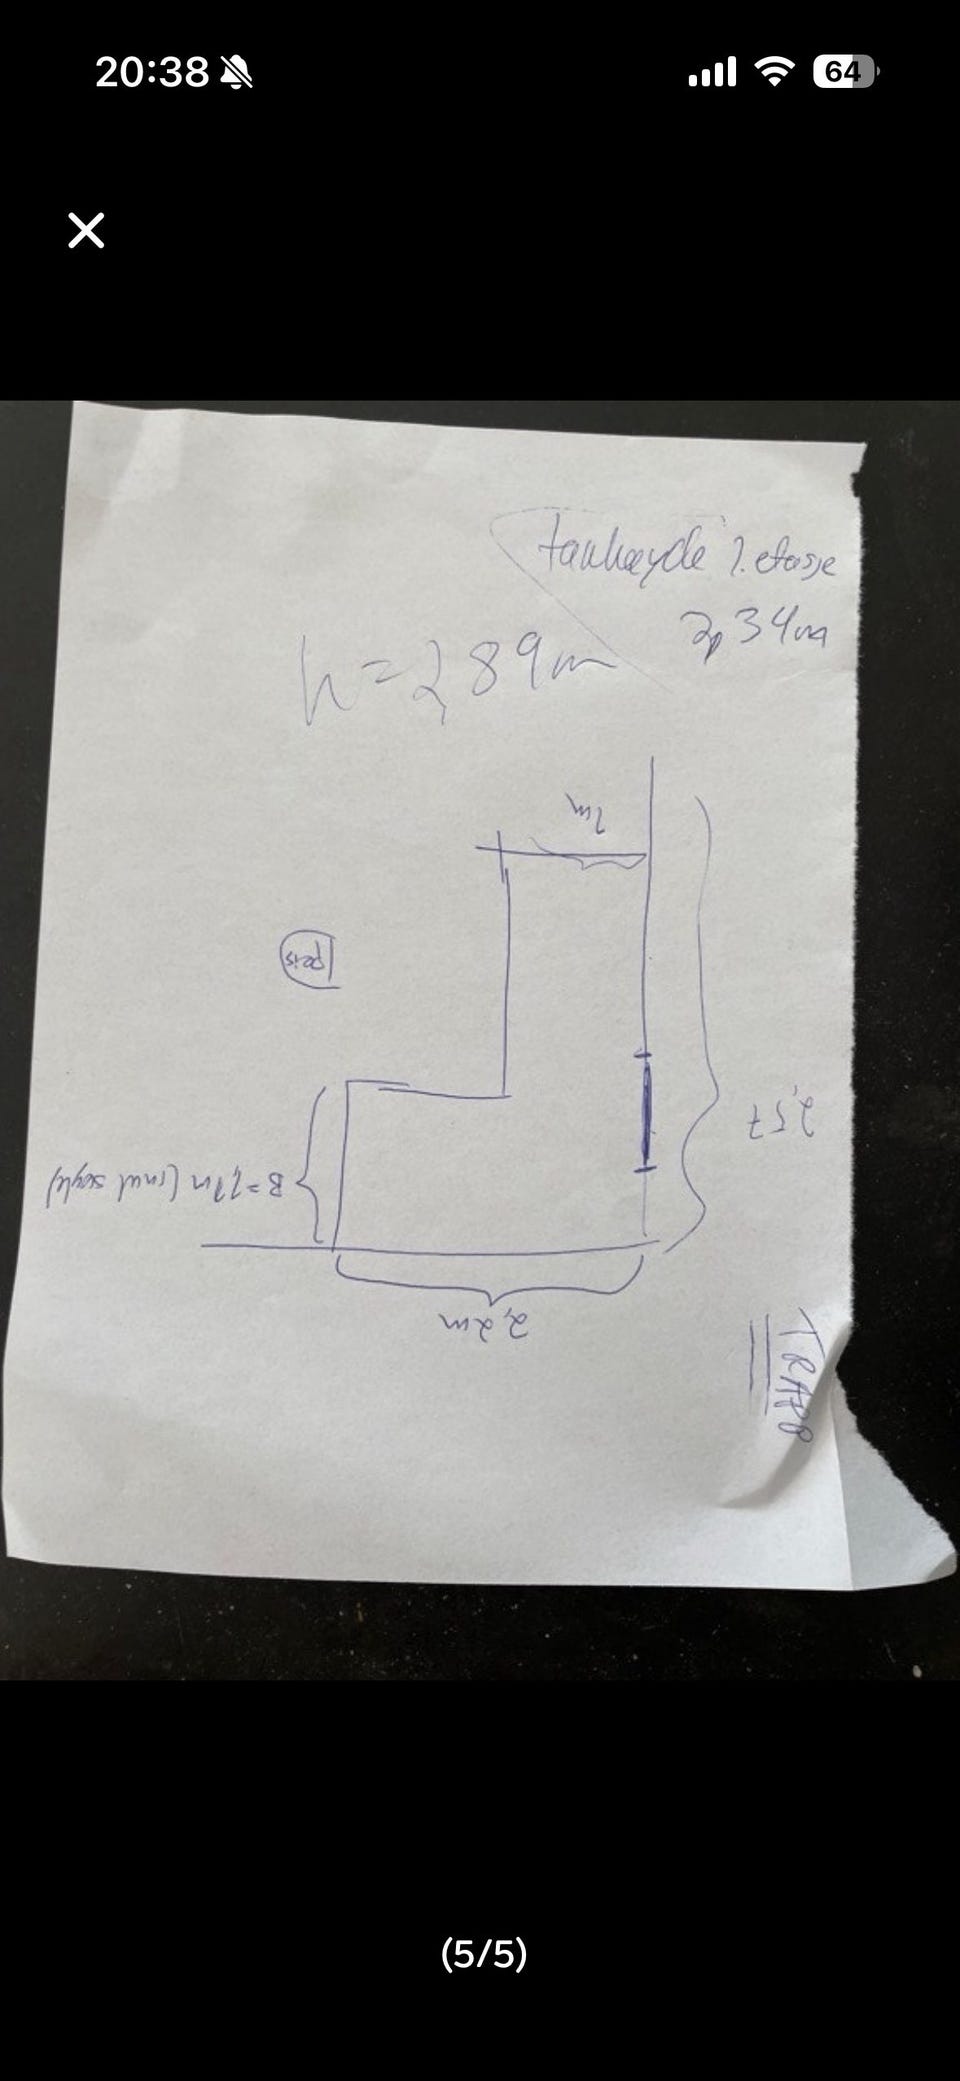 20:38
64
takhøyde 1. etasje
2,34m
h=2,89m
1m
peis
2,57
B=1,1m (mul
2,2m
TRAPP
(5/5)